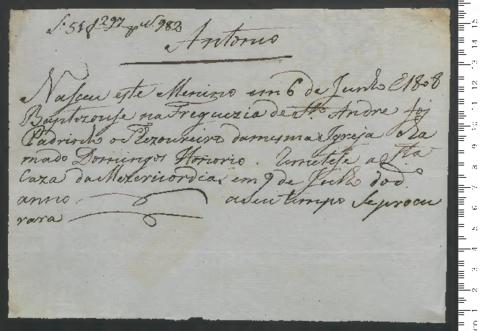 L. 51 f 297 nº 983
Antonio
Nasceu este Menino em 6 de Junho de 1808
Baptezouse na Freguezia de Stº Andre foi
Padrinho o Thezoureiro da mesma Igreja cha
mado Domingos Honorio. Remetese a esta
Caza da Mezericordia, em 9 de Junho do dº
anno a seu tempo Se procu
rara